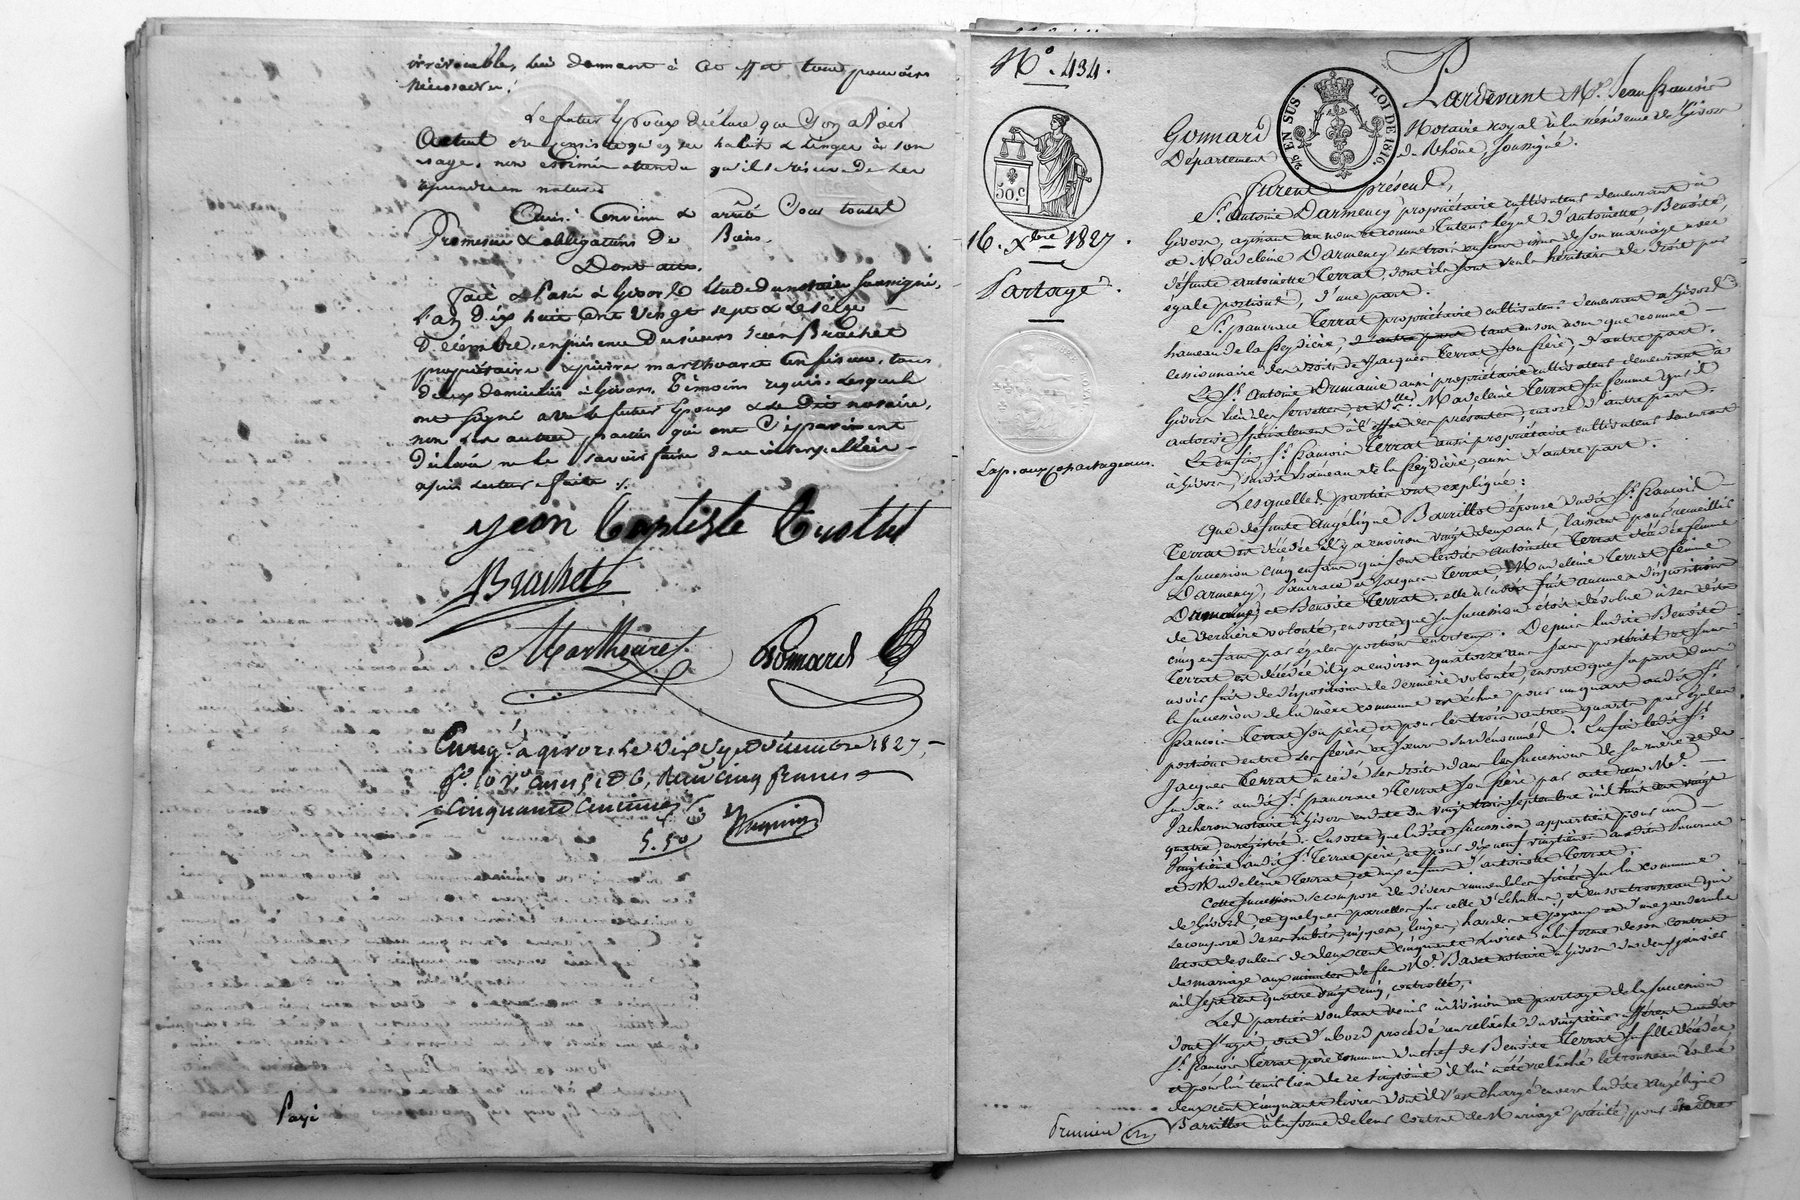 irrévocable, lui donnant à cet effet tous pouvoirs
nécessaires.
Le futur Epoux déclare que son avoir
actuel ne consiste qu'en ses habits & linges à son
usage, non estimés attendu qu'il se réserve de les
reprendre en nature
Ainsi convenu & arrêté sous toutes
Promesses & obligations de Biens.
Dont acte.
Fait & Passé à Givors Etude du notaire soussigné,
l'an dix huit cent vingt sept & le seize
Décembre, en présence du sieurs Jean Brachet
propriétaire & pierre marthouret tous
deux domiciliés à Givors, témoins requis, lesquels
ont signé avec le futur Epoux & le dit notaire,
non les autres parties qui ont séparément
déclaré ne le savoir faire de ce interpellées
après lecture faite ./.
Jean Baptiste
Brachet
Marthouret
Gomard
Enreg.é à givors le dix sept décembre 1827,
f.o 107 cases 5 & 6, Reçu cinq francs
cinquante centimes
5.50
Payé
N.o 434.
50 c
16. Xbre 1827.
Partage.
2/5 EN SUS
LOI DE 1816.
Pardevant M.e Jean francois
Gomard Notaire royal à la résidence de Givors
Département du Rhône, soussigné.
Furent présens,
S.r Antoine Darmency propriétaire cultivateur demeurant à
Givors, agissant au nom et comme tuteur légal d'Antoinette, Benoite,
et Madeleine Darmency ses trois enfans issus de son mariage avec
défunte Antoinette Terrat, dont ils sont seuls héritiers de droit par
égale portions, d'une part.
S.r pancrace Terrat propriétaire cultivateur demeurant à Givors
hameau de la freydière, tant en son nom que comme
cessionnaire des droits de Jacques Terrat son frère, d'autre part.
Le S.r Antoine Dumaine aussi propriétaire cultivateur demeurant à
Givors lieu des et D.lle Madeleine Terrat sa femme qu'il
autorise spécialement à l'effet des présentes, encore d'autre part.
Et enfin, S.r francois Terrat aussi propriétaire cultivateur demeurant
à Givors, susdit hameau de la freydière, aussi d'autre part.
Lesquelles parties ont expliqué:
Que défunte Angélique Barrillot épouse dudit S.r francois
Terrat est décédée il y a environ vingt deux ans, laissant pour recueillir
sa succession cinq enfans qui sont ladite Antoinette Terrat décédée femme
Darmency, Pancrace et Jacques Terrat, Madeleine Terrat femme
Dumaine, et Benoite Terrat, elle n'avoit fait aucune disposition
de dernière volonté, en sorte que sa succession étoit dévolue à ses dits
cinq enfans par égales portions entr'eux. Depuis ladite Benoite
Terrat est décédée il y a environ quatorze ans sans postérité et sans
avoir fait de disposition de dernière volonté, en sorte que sa part dans
la succession de la mère commune est échue pour un quart audit S.r
francois Terrat son père et pour les trois autres quarts par égales
portions entre ses frères et soeurs susdénommés. Enfin ledit S.r
Jacques Terrat a cédé ses droits dans les successions de sa mère et de
sa soeur audit S.r pancrace Terrat son frère par acte reçu M.e
Vacheron notaire à Givors en date du vingt trois septembre mil huit cent vingt
quatre enregistré. En sorte que ladite succession appartient pour un
vingtième audit S.r Terrat père, et pour dix neuf vingtièmes audits Pancrace
et Madeleine Terrat, et aux enfans d'antoinette Terrat.
Cette succession se compose de divers immeubles situés sur la commune
de Givors, et quelques parcelles sur celle d'Echallas, et en son trousseau qui
se compose de ses habits, nippes, linges, hardes et joyaux et d'une garderobe
le tout de valeur de deux cent cinquante livres à la forme de son contrat
de mariage aux minutes de feu M.e notaire à Givors du deux janvier
mil sept cent quatre vingt cinq, contrôlé.
Les parties voulant venir à division et partage de la succession
dont s'agit, ont d'abord procédé au relâche du vingtième afférent audit
S.r francois Terrat père commun du chef de Benoite Terrat sa fille décédée
et pour lui tenir lieu de ce vingtième il lui a été relâché le trousseau évalué
deux cent cinquante livres dont il s'est chargé envers ladite Angélique
Barrillot à la forme de leur contrat de Mariage précité, pour